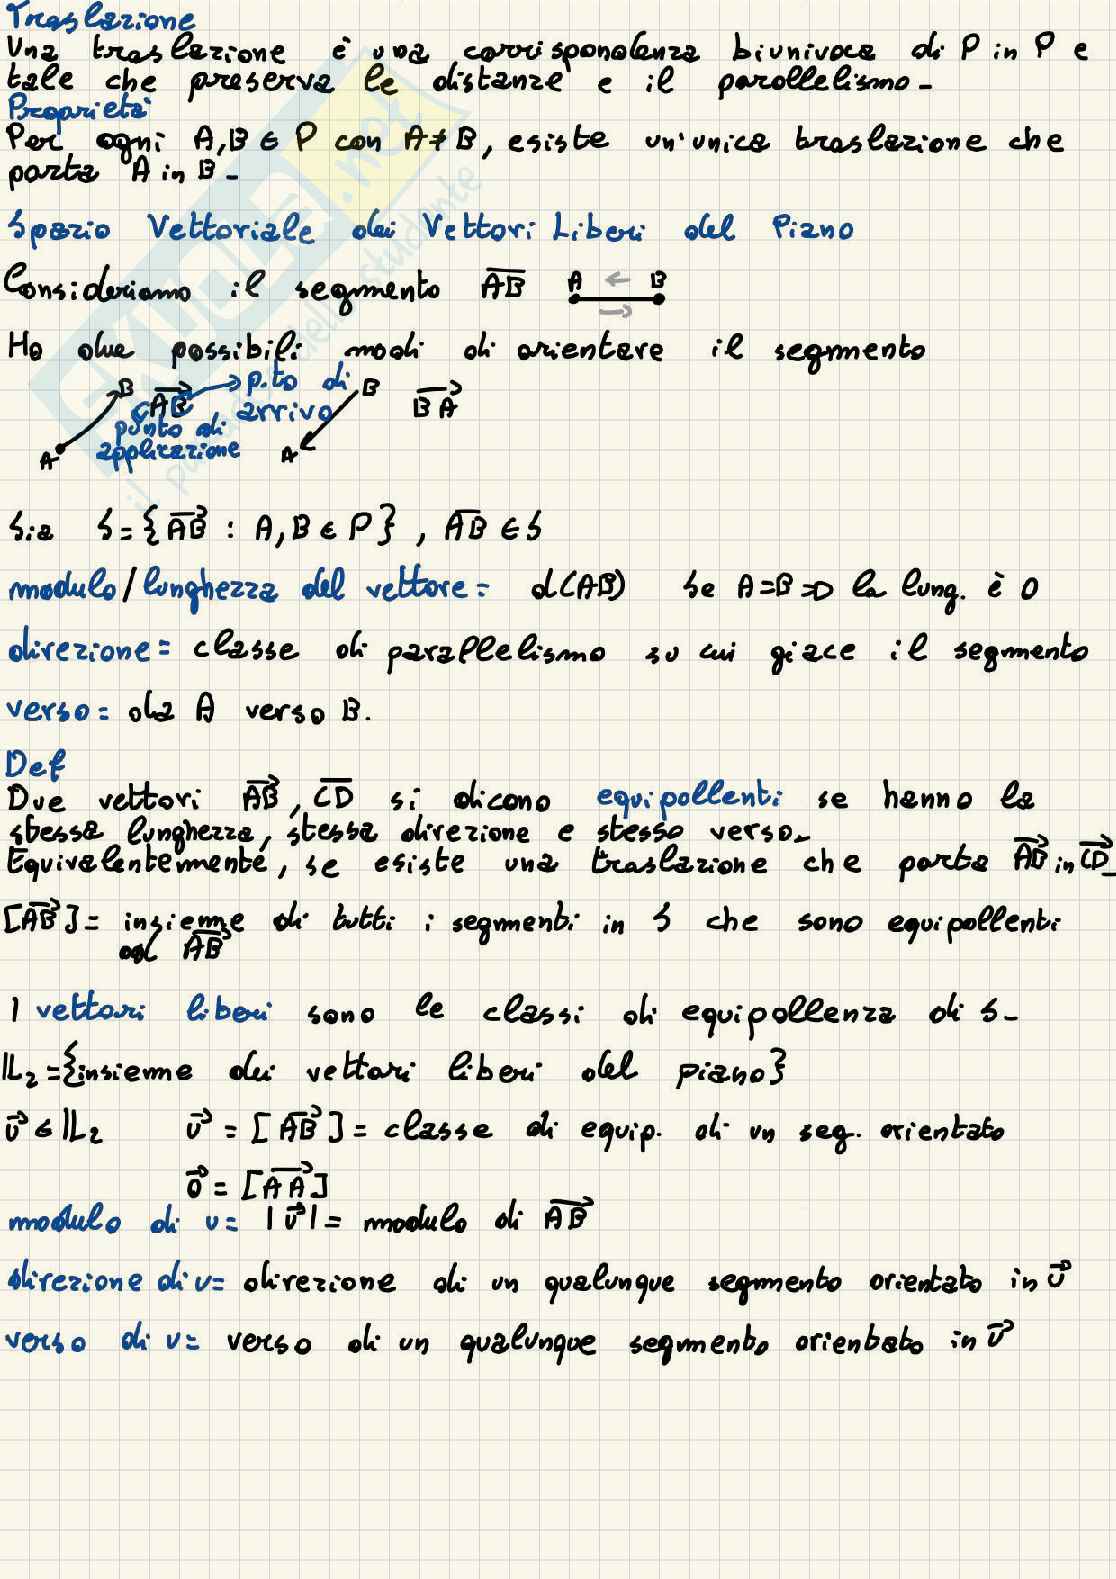 Traslazione
Una traslazione è una corrispondenza biunivoca di P in P e
tale che preserva le distanze e il parallelismo-
Proprietà
Per ogni A,B ∈ P con A≠B, esiste un'unica traslazione che
porta A in B-
Spazio Vettoriale dei Vettori Liberi del Piano
Consideriamo il segmento A̅B̅ A B
Ho due possibili modi di orientare il segmento
B AB→ p.to di arrivo B BA→
punto di applicazione
A A
Sia S={AB→ : A,B ∈ P} , A̅B̅ ∈ S
modulo/lunghezza del vettore= d(AB) Se A=B => la lung. è 0
direzione= classe di parallelismo su cui giace il segmento
verso= da A verso B.
Def
Due vettori AB→, C̅D̅ si dicono equipollenti se hanno la
stessa lunghezza, stessa direzione e stesso verso-
Equivalentemente, se esiste una traslazione che porta AB→ in CD→-
[AB→]= insieme di tutti i segmenti in S che sono equipollenti
ad AB→
I vettori liberi sono le classi di equipollenza di S-
𝕃₂={insieme dei vettori liberi del piano}
v→ ∈ 𝕃₂ v→ = [AB→]= classe di equip. di un seg. orientato
0→ = [AA→]
modulo di v= |v→|= modulo di AB→
direzione di v= direzione di un qualunque segmento orientato in v→
verso di v= verso di un qualunque segmento orientato in v→
SKUOLA.net
il paradiso dello studente